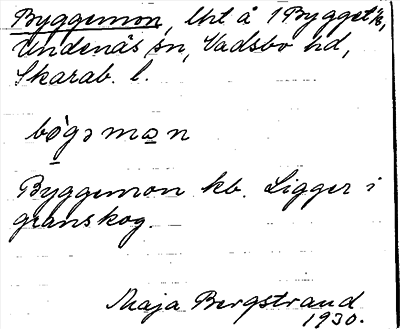 Byggemon, lht å 1 Bygget 1/8,
Undenäs sn, Vadsbo hd,
Skarab. l.
bøgəman
Byggemon kb. Ligger i
granskog.
Maja Bergstrand
1930.